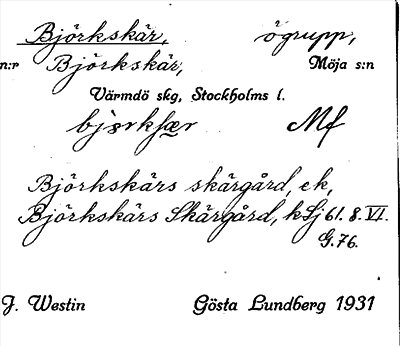 Björkskär, ögrupp,
n:r Björkskär, Möja s:n
Värmdö skg, Stockholms l.
Mf
Björkskärs skärgård, ek,
Björkskärs Skärgård, kSj 61. 8. VI.
G. 76.
J. Westin Gösta Lundberg 1931